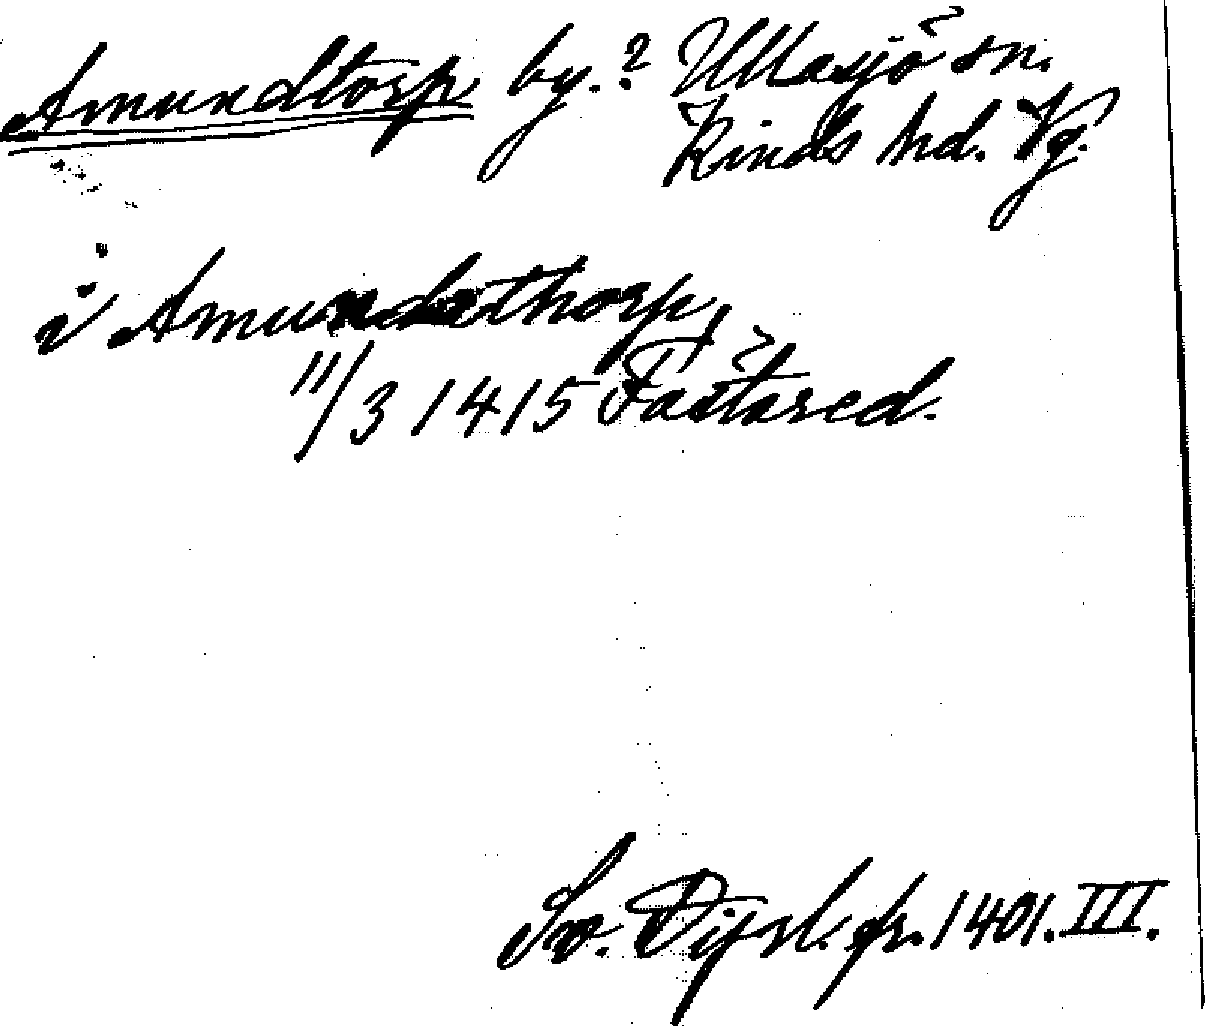 Amundtorp by.? Ullasjö sn.
Kinds hd. Vg.
i Amundathorp,
11/3 1415 Fastared.
Sv. Dipl. fr. 1401. III.